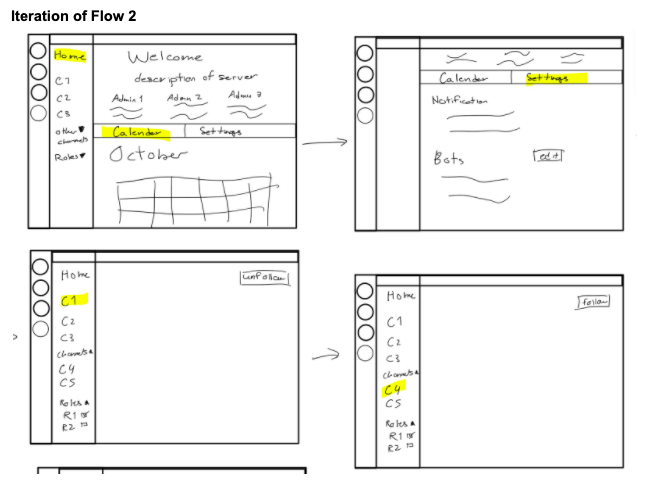 Iteration of Flow 2
Home
C1
C2
C3
other ▼
channels
Roles ▼
Welcome
description of server
Admin 1 Admin 2 Admin 3
Calender Settings
October
Calender Settings
Notification
Bots edit
Home
C1
C2
C3
channels ▲
C4
C5
Roles ▲
R1
R2
unfollow
Home
C1
C2
C3
channels ▲
C4
C5
Roles ▲
R1
R2
follow